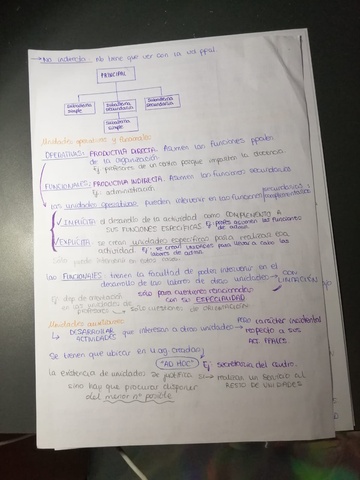 → No indirecta: no tiene que ver con la ud ppal.
PRINCIPAL
Subalterna simple
Subalterna secundaria
Subalterna secundaria
Subalterna simple
Unidades operativas y funcionales
OPERATIVAS: PRODUCTIVA DIRECTA. Asumen las funciones ppales
de la organización
Ej: profesores de un centro porque imparten la docencia.
FUNCIONALES: PRODUCTIVA INDIRECTA. Asumen las funciones secundarias
Ej: administración
las unidades operativas pueden intervenir en las funciones secundarias y complementarias
IMPLÍCITA el desarrollo de la actividad como COMPLEMENTO A
SUS FUNCIONES ESPECÍFICAS. Ej: profes asumen las funciones
de admin.
EXPLÍCITA: se crean unidades específicas para realizar esa
actividad. Ej: se crean unidades para llevar a cabo las
labores de admin.
Solo puede intervenir en estos casos
las FUNCIONALES: tienen la facultad de poder intervenir en el
desarrollo de las labores de otras unidades → CON
LIMITACIÓN
sólo para cuestiones relacionadas
con su ESPECIALIDAD
Ej: dep. de orientación
en las unidades de
profesores → sólo cuestiones de orientación
Unidades auxiliares
↳ DESARROLLAR ACTIVIDADES que interesan a otras unidades → pero carácter incidental
respecto a sus
ACT. PPALES
Se tienen que ubicar en u. org. creadas
"AD HOC" Ej: secretaría del centro.
la existencia de unidades se justifica si → realizan un servicio al
RESTO DE UNIDADES
sino hay que procurar disponer
del menor nº posible